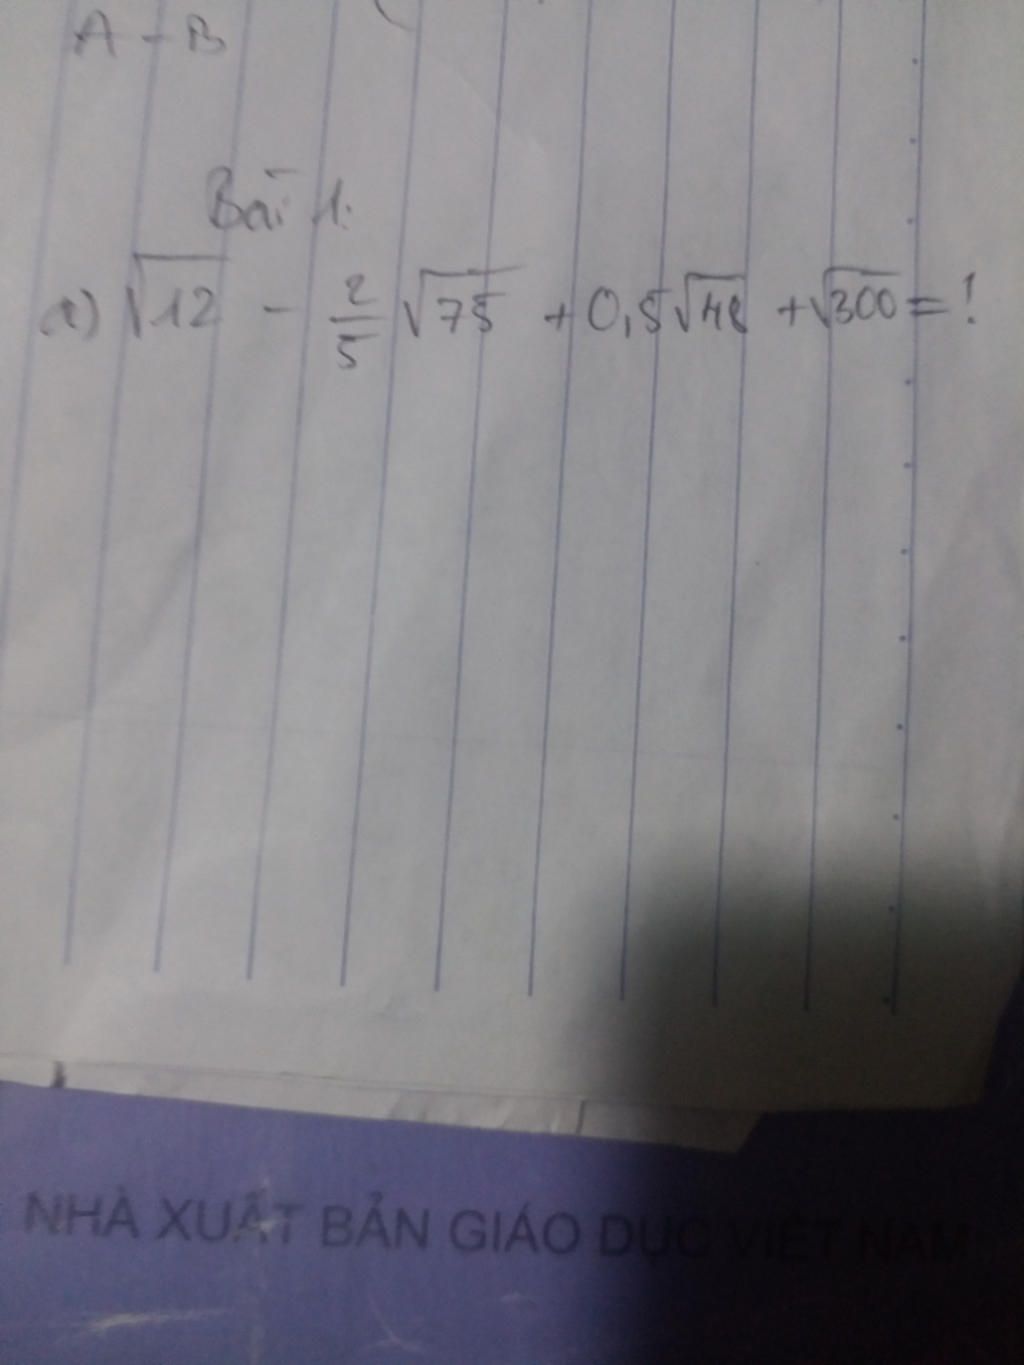 A - B
Bài 1:
a) √12 - 2/5 √75 + 0,5√48 + √300 = !
NHÀ XUẤT BẢN GIÁO DỤC VIỆT NAM